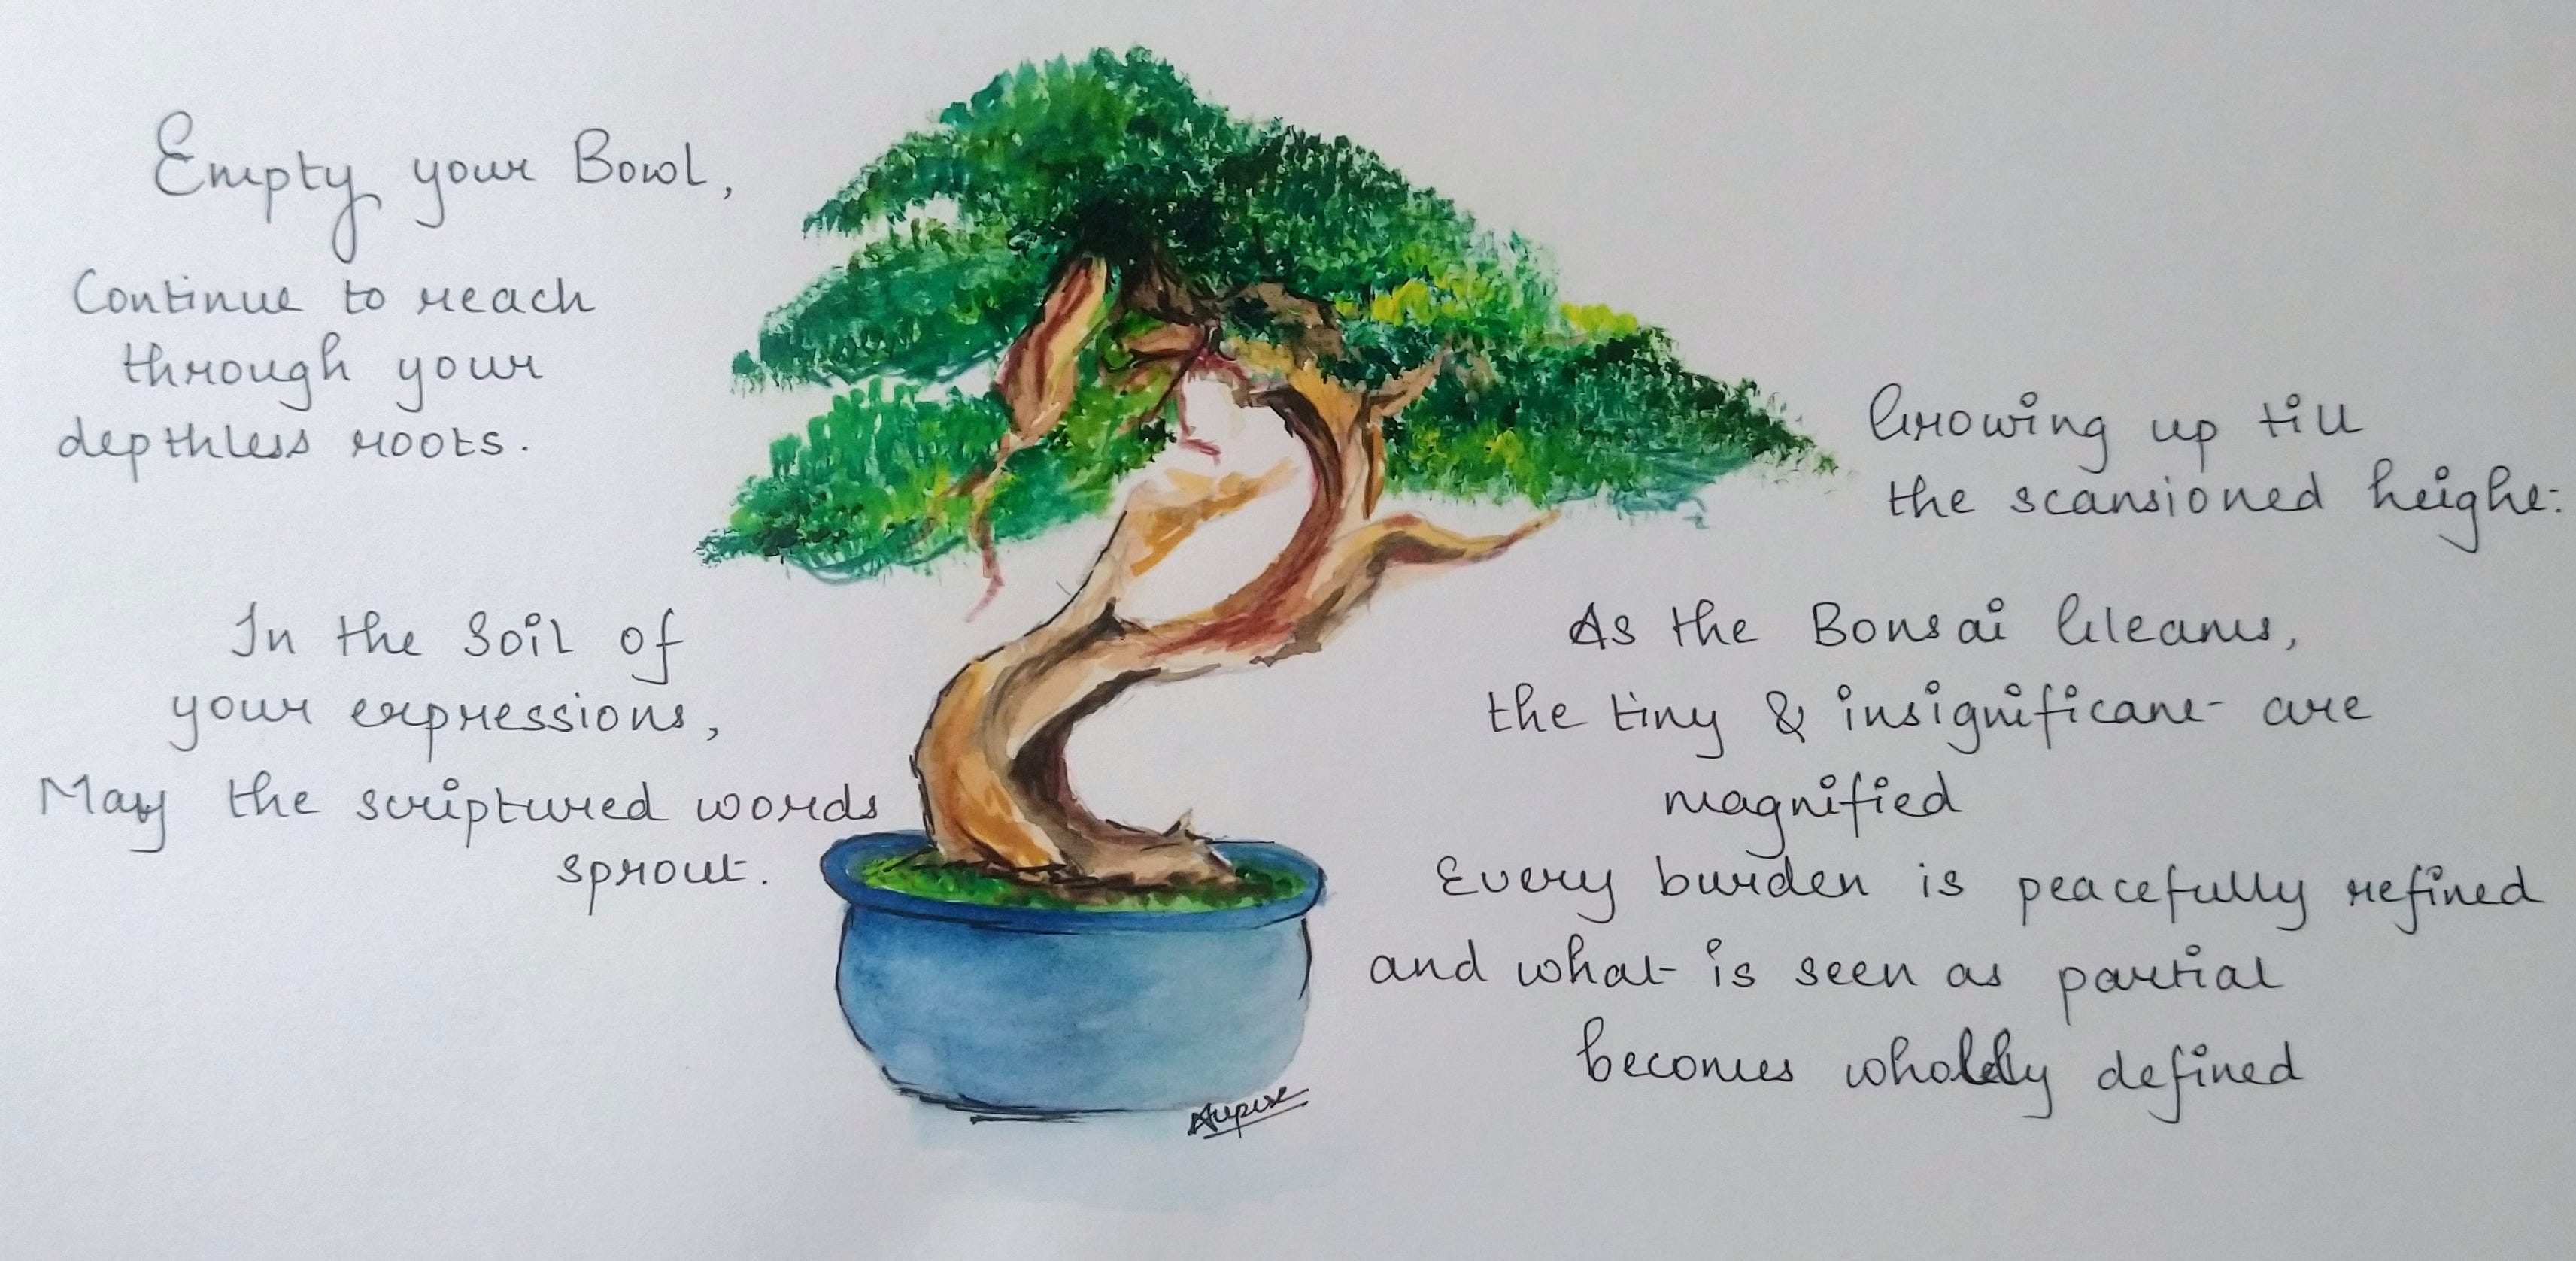 Empty your Bowl,
Continue to reach
through your
depthless roots.
In the Soil of
your expressions,
May the scriptured words
sprout.
Growing up till
the scansioned height.
As the Bonsai Gleams,
the tiny & insignificant are
magnified
Every burden is peacefully refined
and what is seen as partial
becomes wholely defined